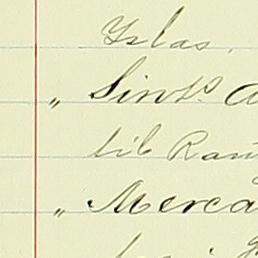 Yslas.
„ Sint.º A
til Ram
„ Merca